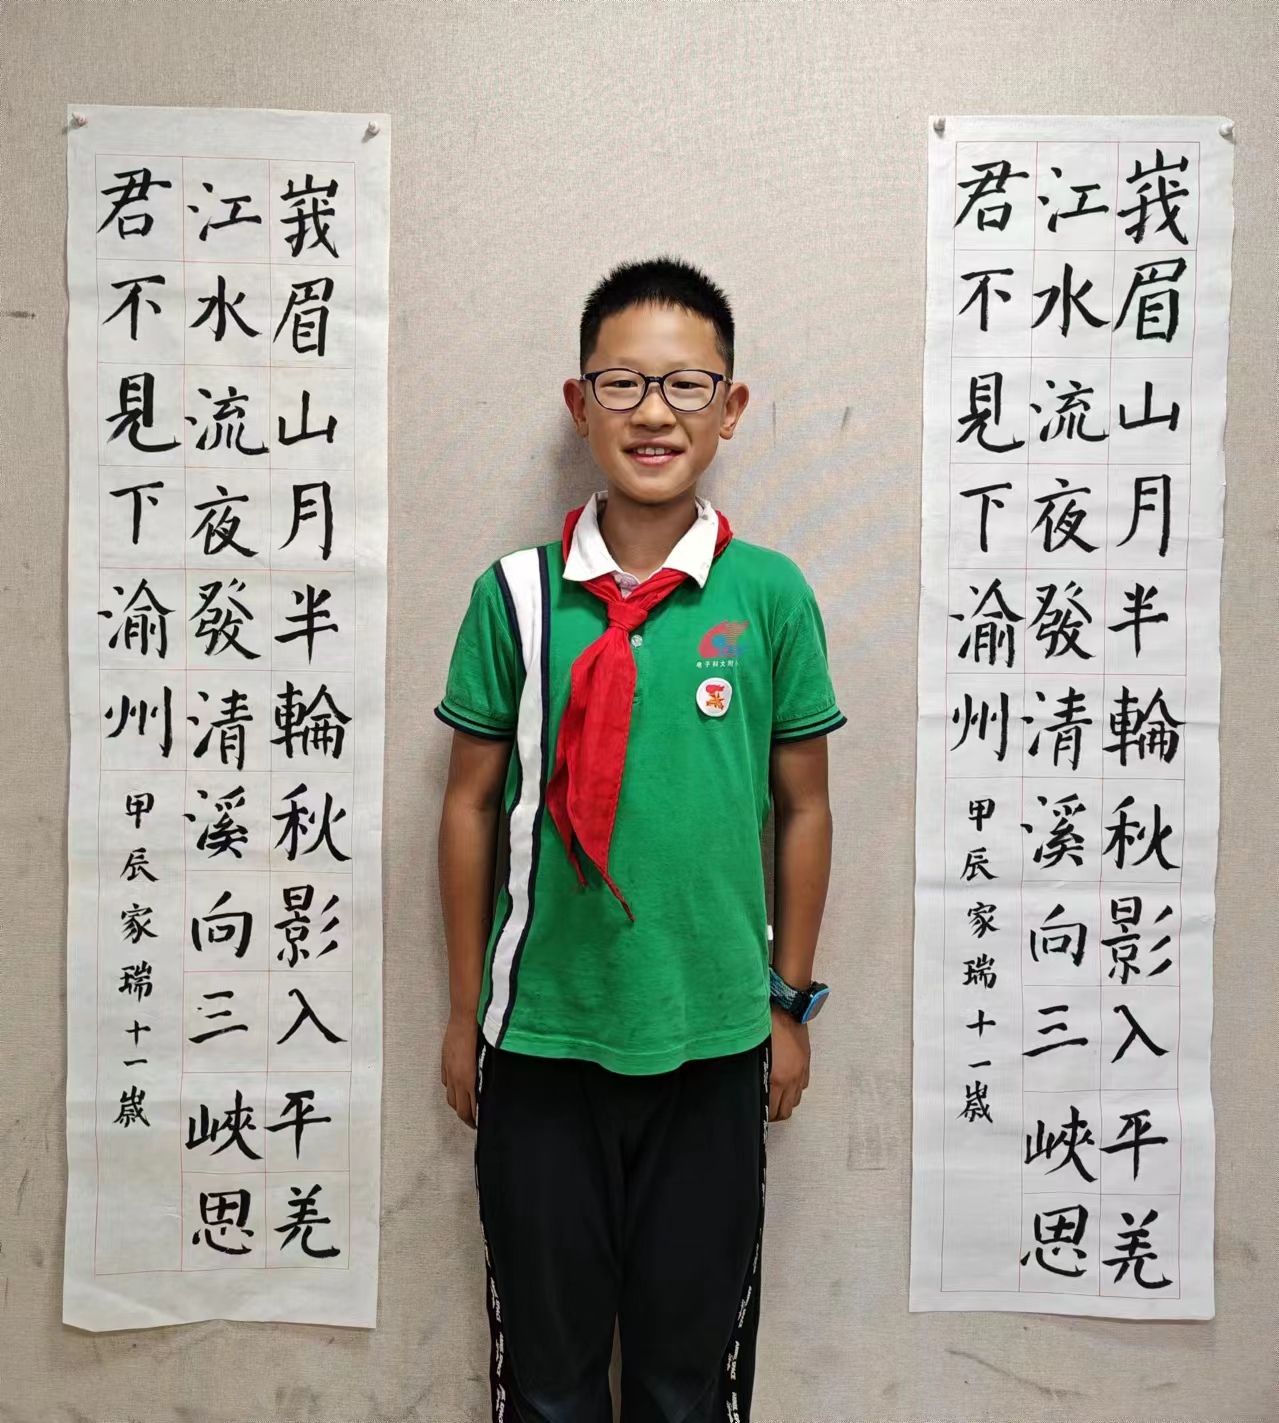 峩眉山月半輪秋影入平羌
江水流夜發清溪向三峽思
君不見下渝州
甲辰家瑞十一歲
峩眉山月半輪秋影入平羌
江水流夜發清溪向三峽思
君不見下渝州
甲辰家瑞十一歲
电子科大附小